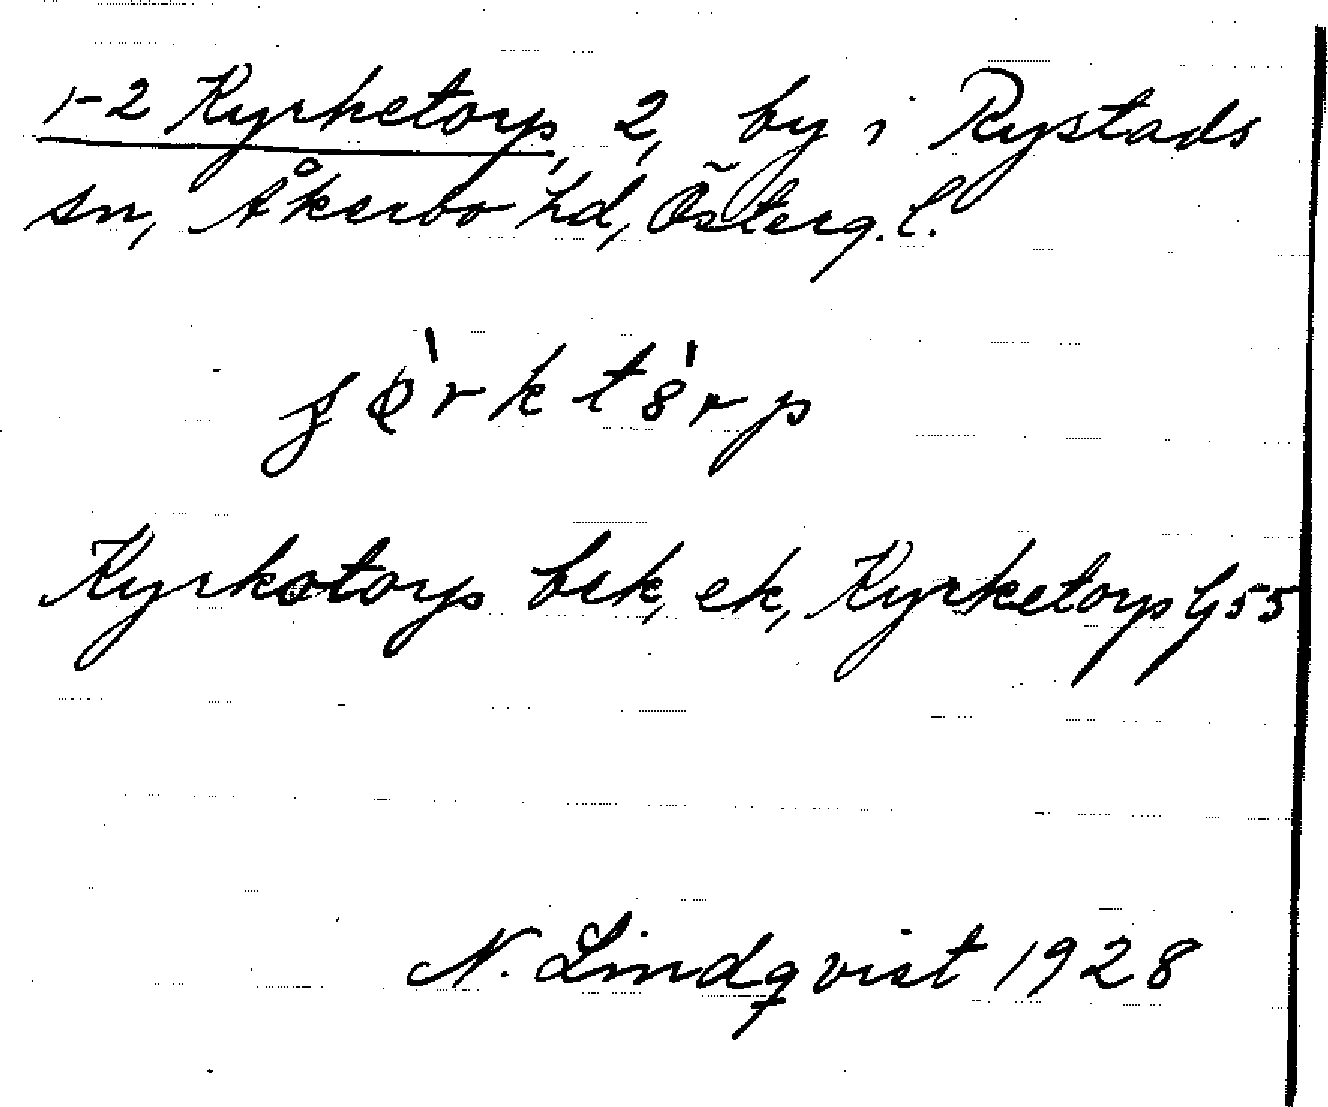 1-2 Kyrketorp, 2, by i Rystads
sn, Åkerbo hd, Österg. l.
Kyrkotorp bek, ek, Kyrketorp G 55
N. Lindqvist 1928